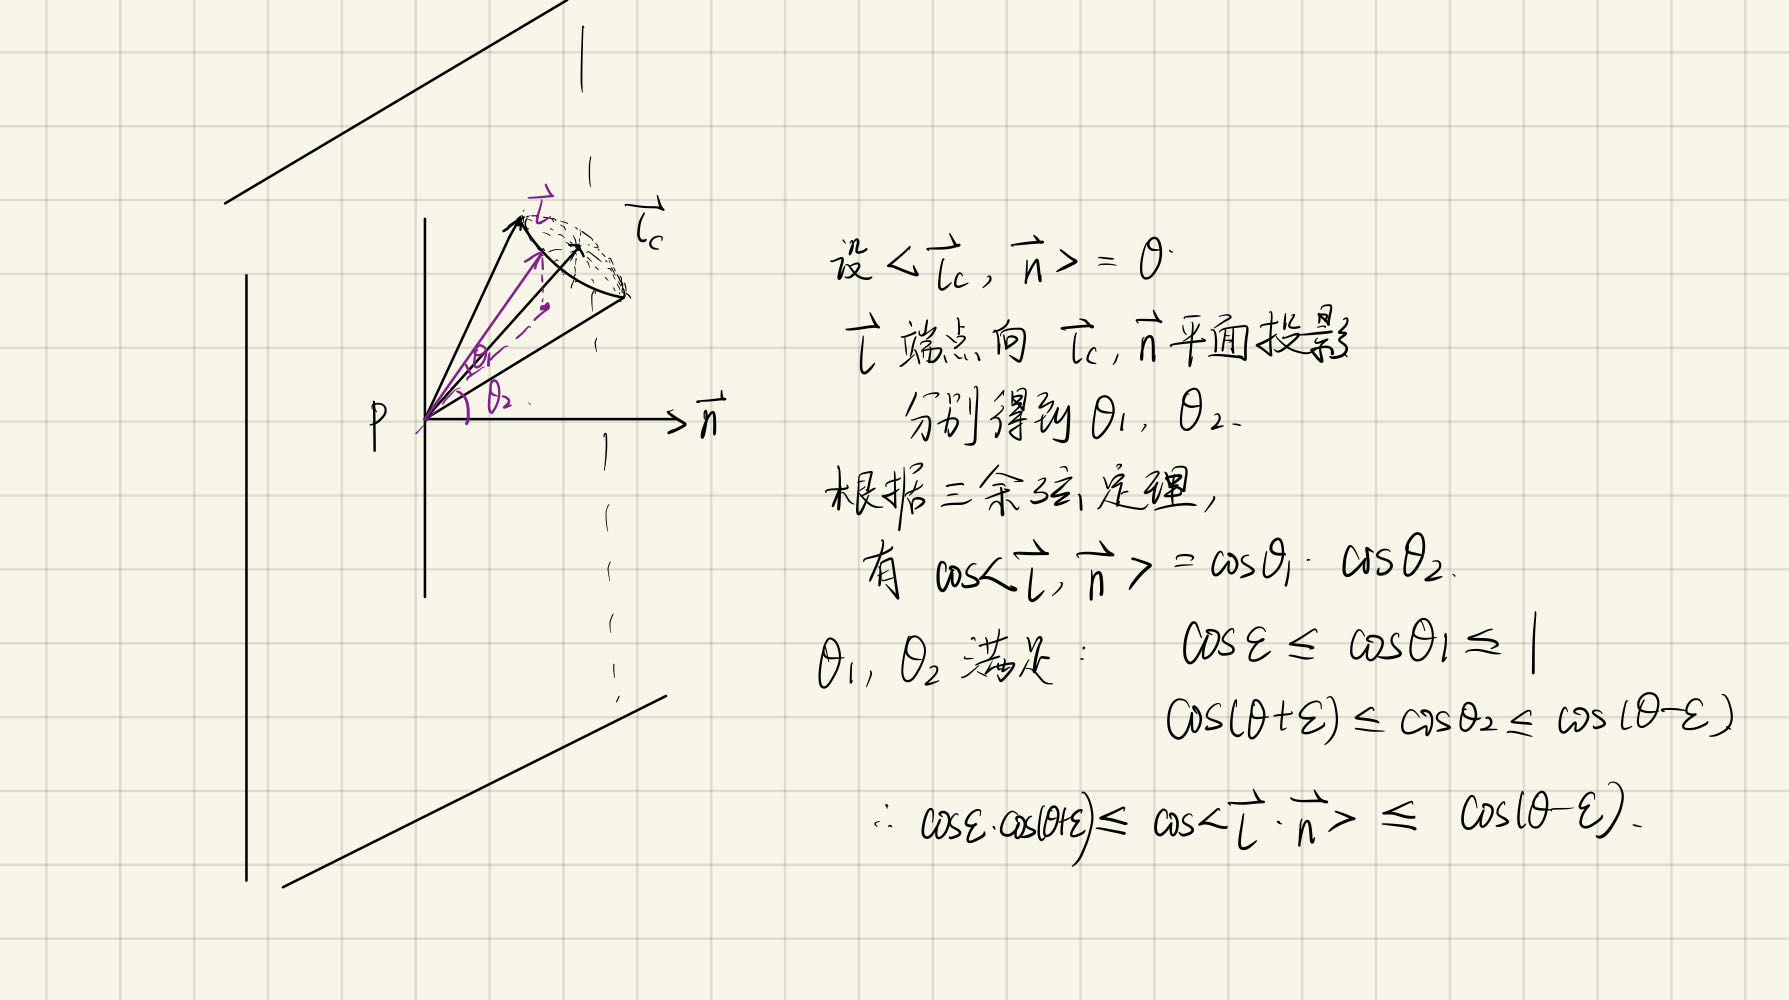 l⃗
l⃗c
θ₁
θ₂
P
n⃗
设 <l⃗c, n⃗> = θ.
l⃗ 端点向 l⃗c, n⃗ 平面投影
分别得到 θ₁, θ₂.
根据三余弦定理,
有 cos<l⃗, n⃗> = cosθ₁ · cosθ₂.
θ₁, θ₂ 满足: cosε ≤ cosθ₁ ≤ 1
cos(θ+ε) ≤ cosθ₂ ≤ cos(θ-ε)
∴ cosε·cos(θ+ε) ≤ cos<l⃗·n⃗> ≤ cos(θ-ε).